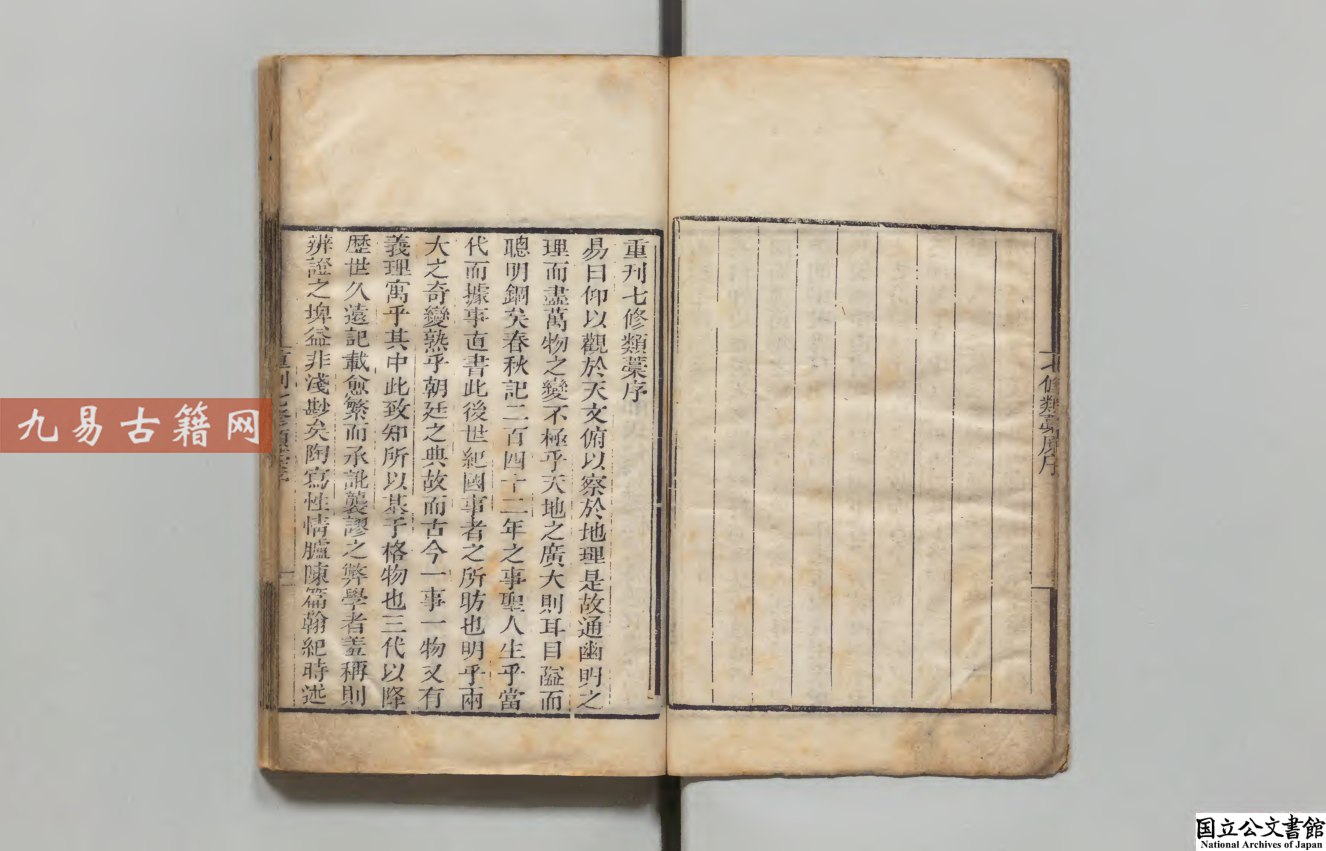 七修類藁序
重刊七修類藁序
易曰仰以觀於天文俯以察於地理是故通幽明之
理而盡萬物之變不極乎天地之廣大則耳目隘而
聰明錮矣春秋記二百四十二年之事聖人生乎當
代而據事直書此後世紀國事者之所昉也明乎兩
大之奇變熟乎朝廷之典故而古今一事一物又有
義理寓乎其中此致知所以基于格物也三代以降
歷世久遠記載愈繁而承訛襲謬之弊學者羞稱則
辨證之埤益非淺尠矣陶寫性情臚陳篇翰紀時述
重刊七修類藁序
九易古籍网
国立公文書館
National Archives of Japan